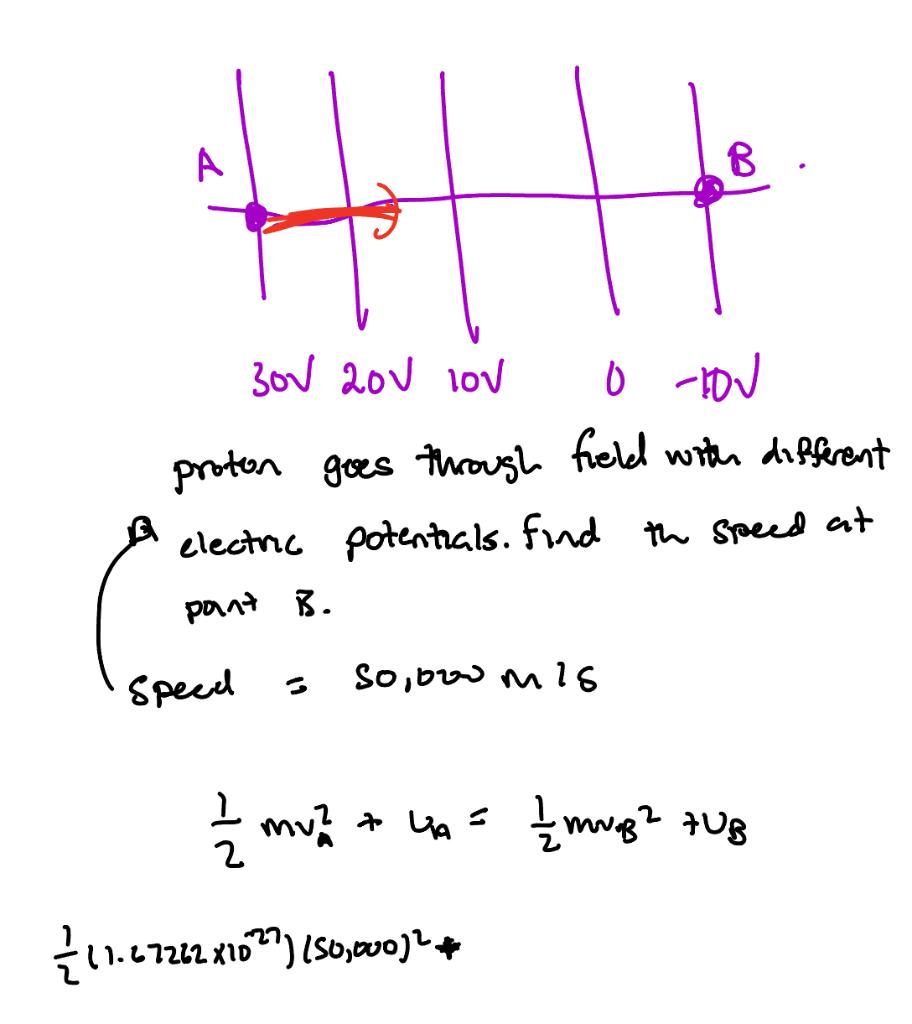 A B
30V 20V 10V 0 -10V
proton goes through field with different
electric potentials. find th speed at
point B.
speed = 50,000 m/s
1/2 mv_A^2 + U_A = 1/2 mv_B^2 + U_B
1/2 (1.67262 x10^-27) (50,000)^2 +